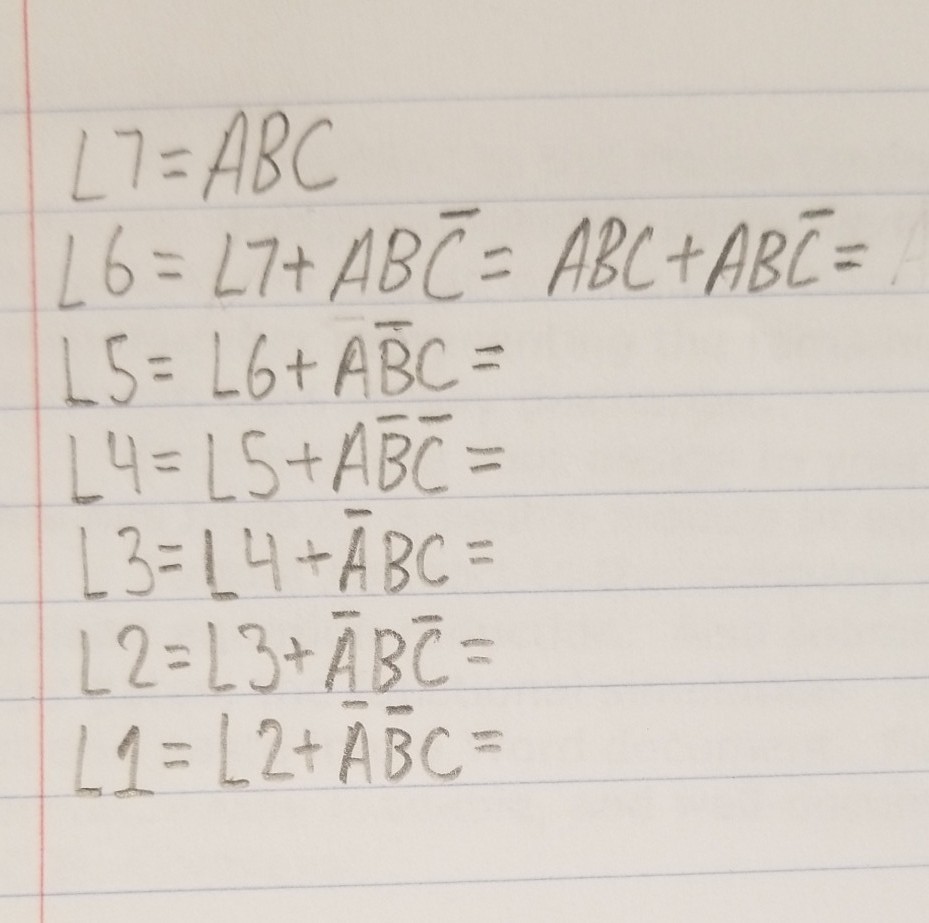 L7 = ABC
L6 = L7 + ABC̅ = ABC + ABC̅ =
L5 = L6 + AB̅C =
L4 = L5 + AB̅C̅ =
L3 = L4 + A̅BC =
L2 = L3 + A̅BC̅ =
L1 = L2 + A̅B̅C =